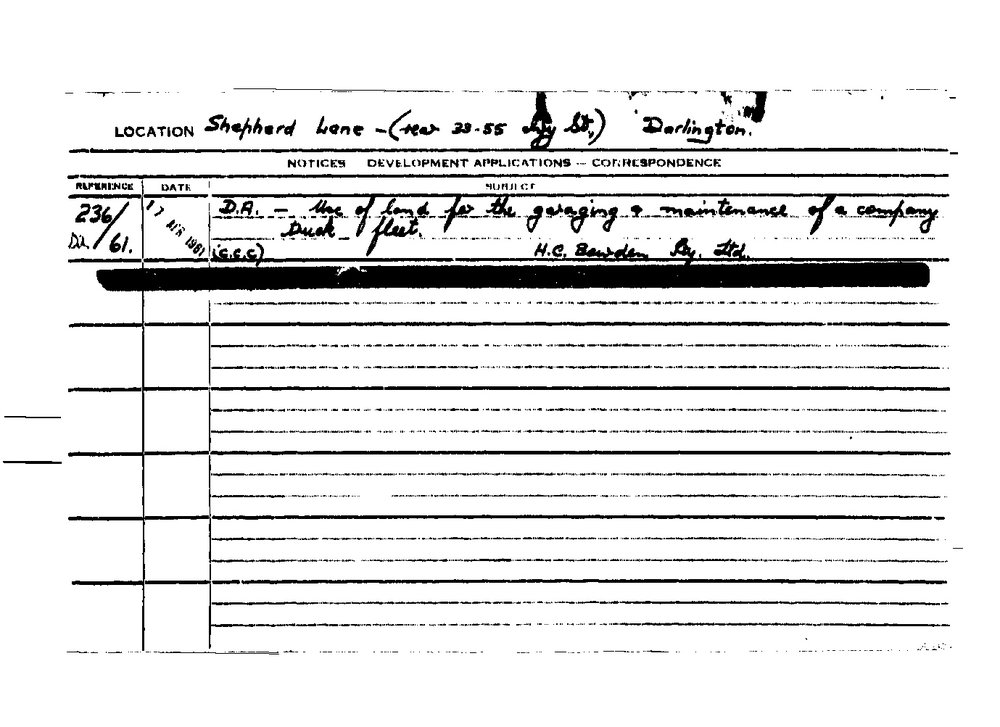 LOCATION Shepherd Lane - (rear 33-55 Ivy St,) Darlington.
NOTICES DEVELOPMENT APPLICATIONS — CORRESPONDENCE
REFERENCE DATE SUBJECT
236/ 17 APR 1961 D.A. - Use of land for the garaging & maintenance of a company
truck fleet.
61. (C.C.C) H.C. Bowden Py. Ltd.